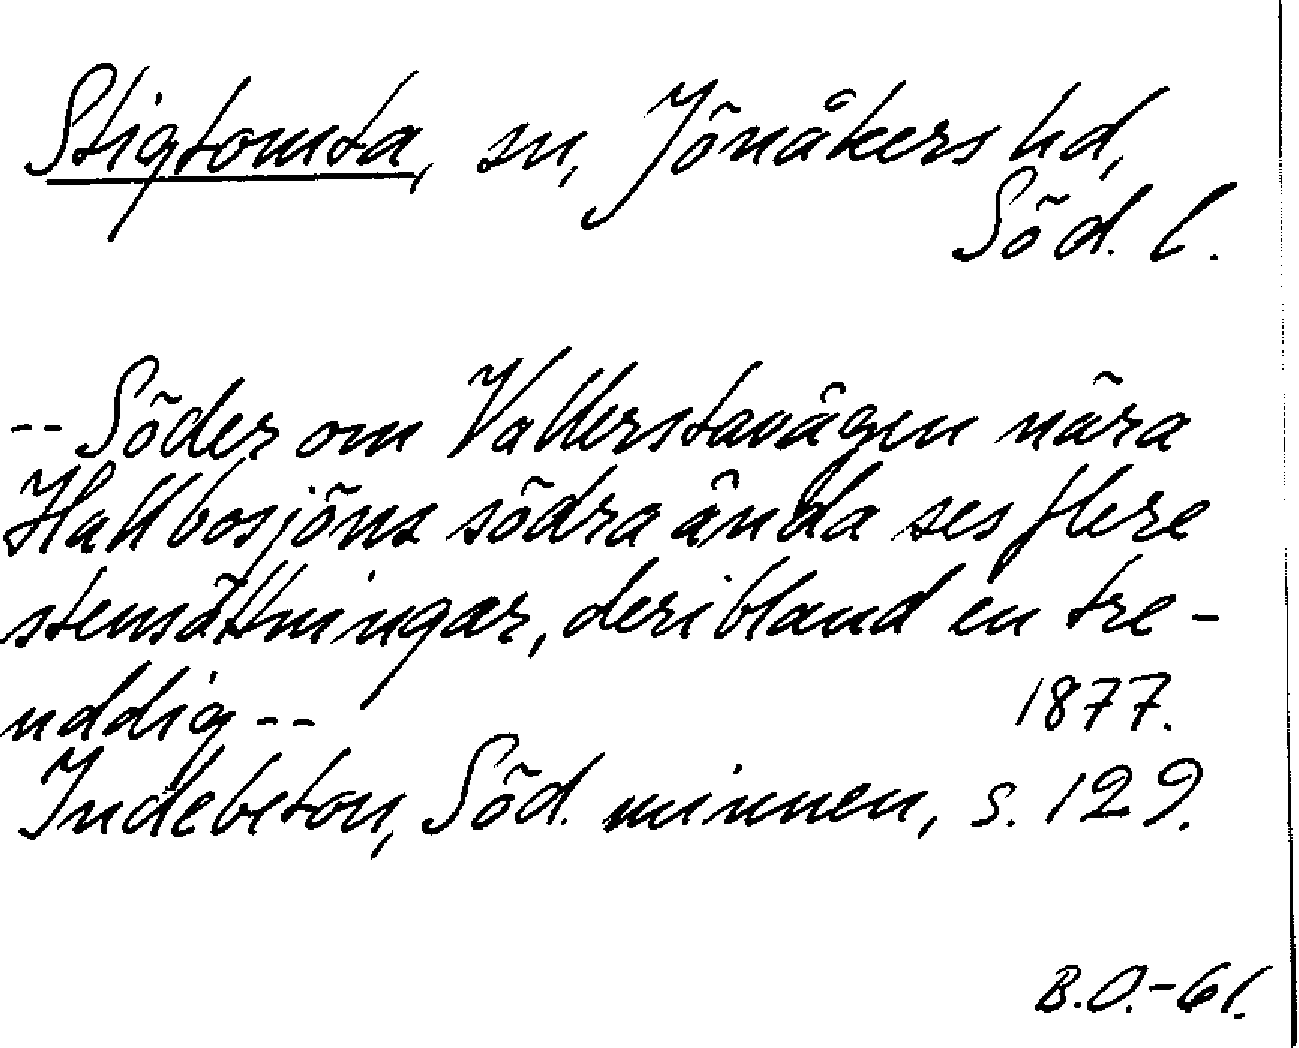 Stigtomta, sn, Jönåkers hd,
Söd. l.
-- Söder om Vallerstavägen nära
Hallbosjöns södra ända ses flere
stensättningar, deribland en tre-
uddig --
1877.
Indebetou, Söd. minnen, s. 129.
B.O.-61.